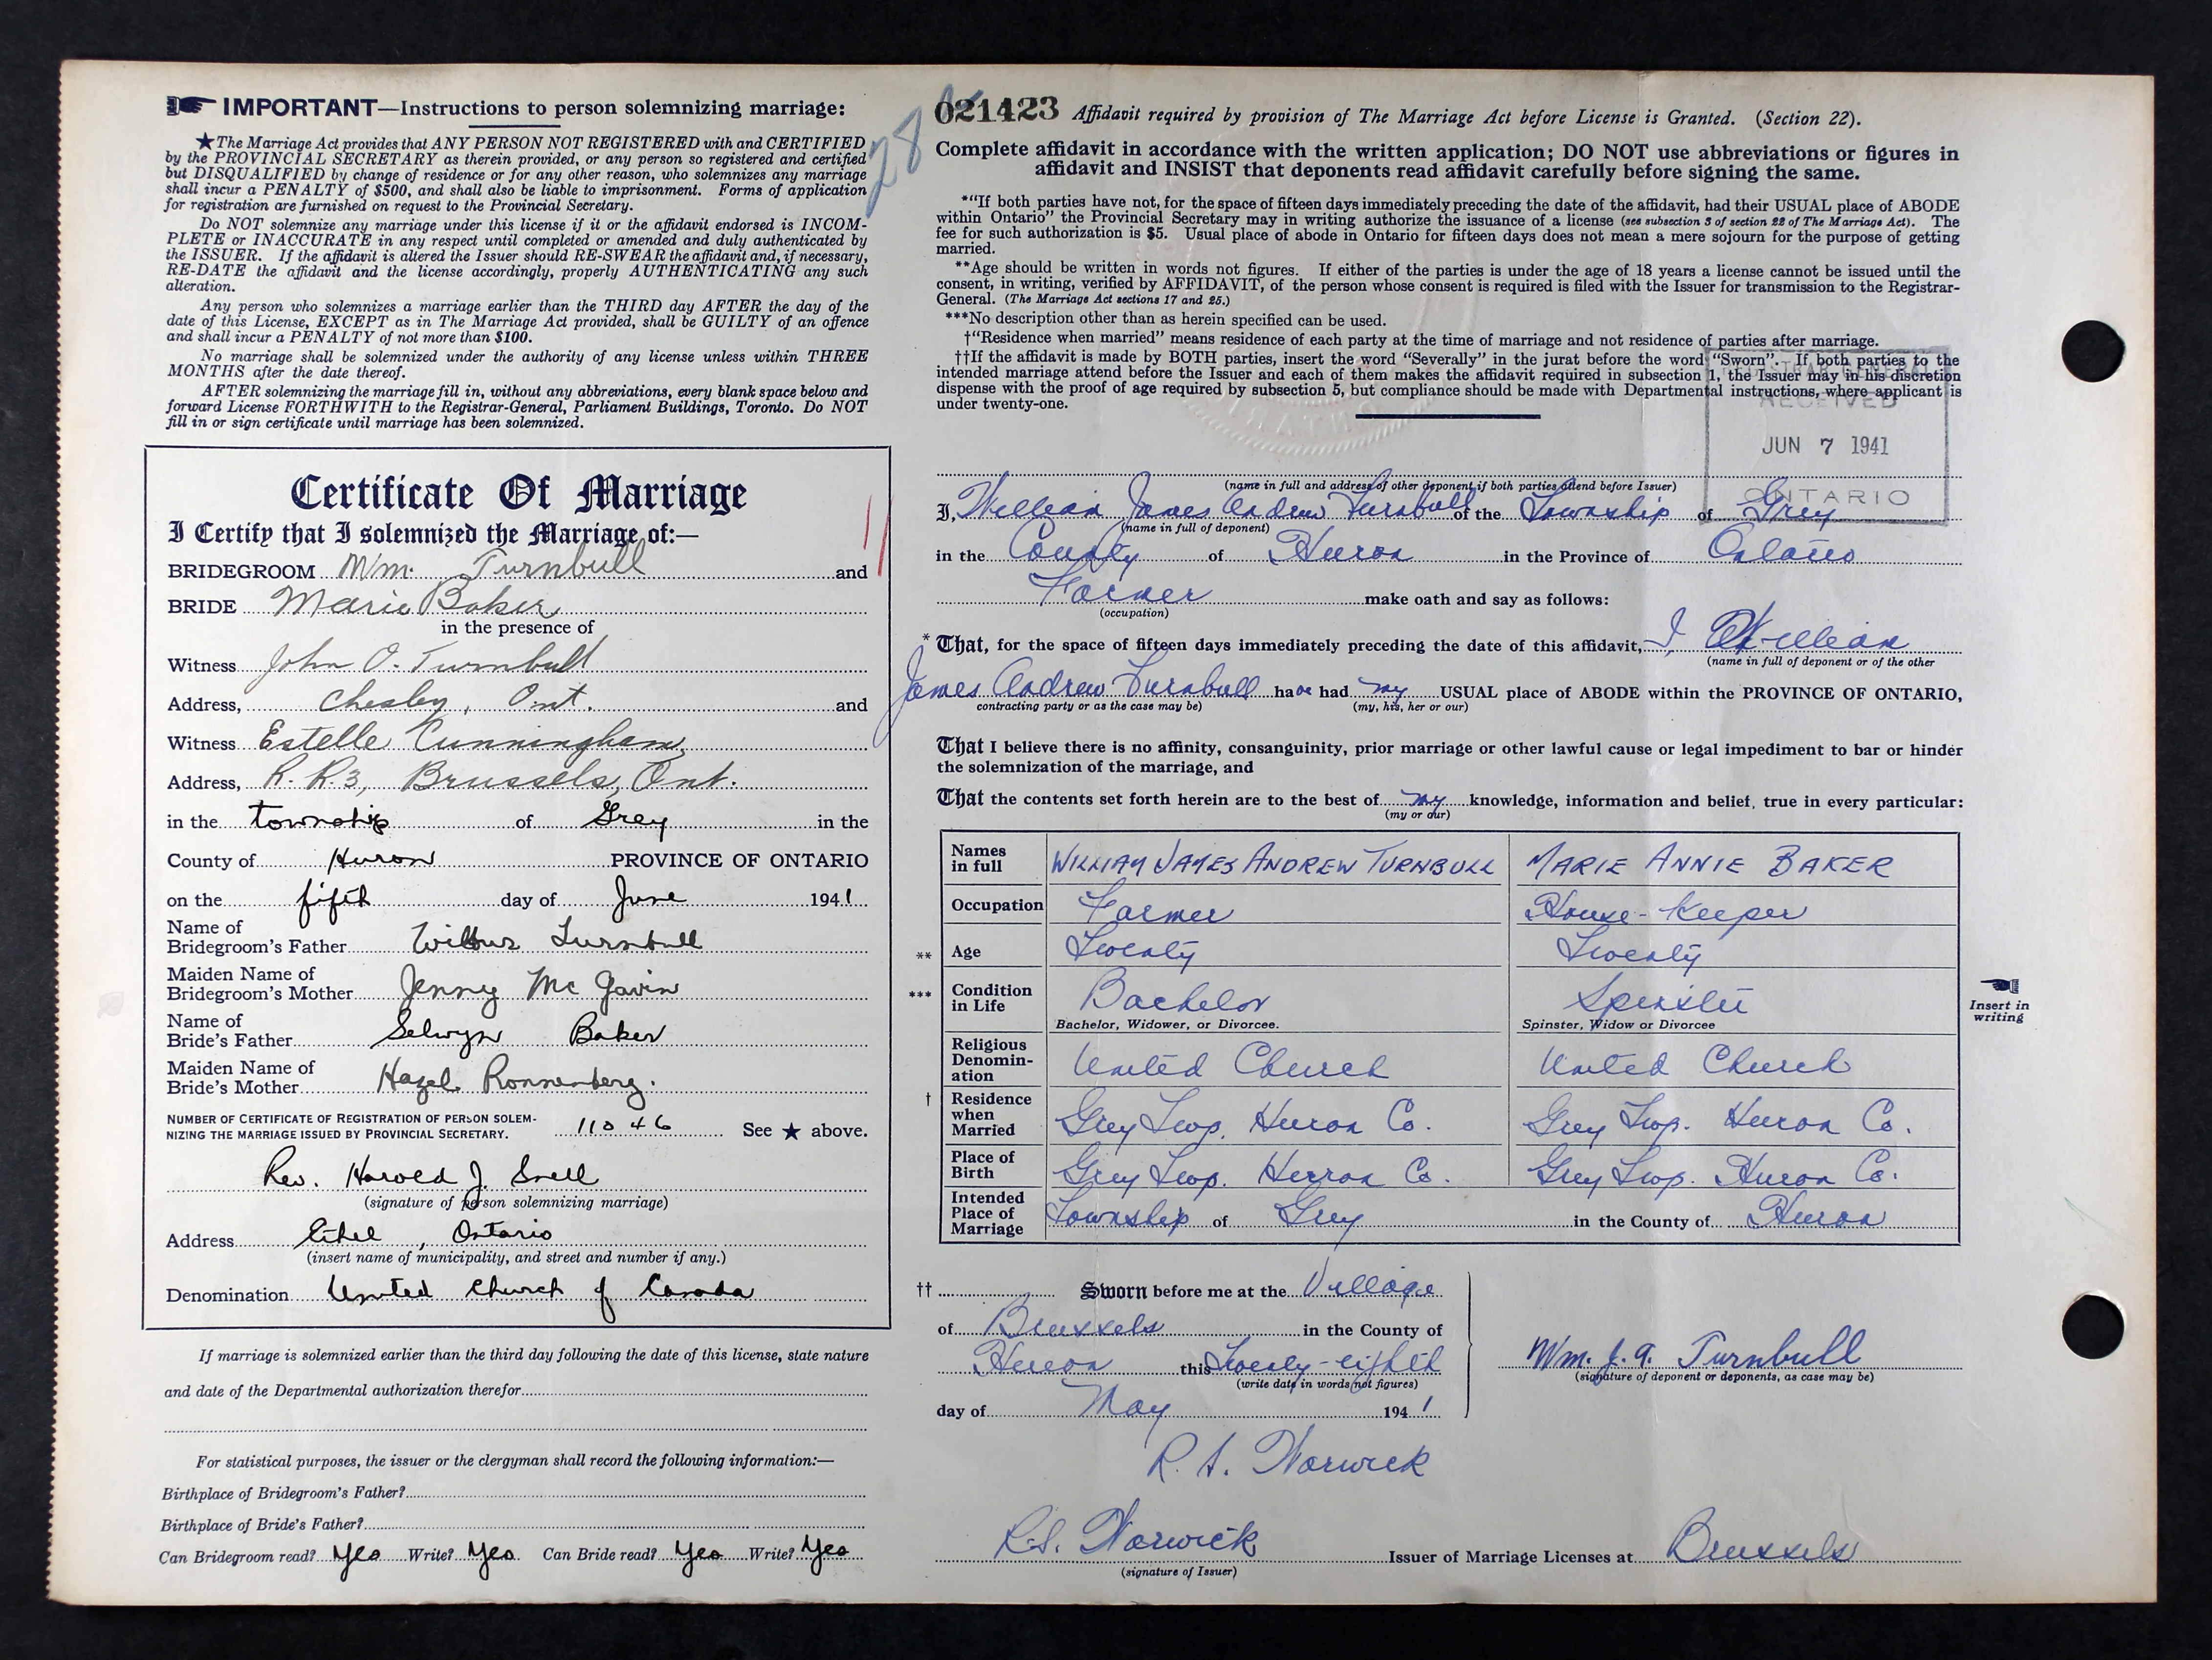 IMPORTANT—Instructions to person solemnizing marriage:
★The Marriage Act provides that ANY PERSON NOT REGISTERED with and CERTIFIED
by the PROVINCIAL SECRETARY as therein provided, or any person so registered and certified
but DISQUALIFIED by change of residence or for any other reason, who solemnizes any marriage
shall incur a PENALTY of $500, and shall also be liable to imprisonment. Forms of application
for registration are furnished on request to the Provincial Secretary.
Do NOT solemnize any marriage under this license if it or the affidavit endorsed is INCOM-
PLETE or INACCURATE in any respect until completed or amended and duly authenticated by
the ISSUER. If the affidavit is altered the Issuer should RE-SWEAR the affidavit and, if necessary,
RE-DATE the affidavit and the license accordingly, properly AUTHENTICATING any such
alteration.
Any person who solemnizes a marriage earlier than the THIRD day AFTER the day of the
date of this License, EXCEPT as in The Marriage Act provided, shall be GUILTY of an offence
and shall incur a PENALTY of not more than $100.
No marriage shall be solemnized under the authority of any license unless within THREE
MONTHS after the date thereof.
AFTER solemnizing the marriage fill in, without any abbreviations, every blank space below and
forward License FORTHWITH to the Registrar-General, Parliament Buildings, Toronto. Do NOT
fill in or sign certificate until marriage has been solemnized.
28
Certificate Of Marriage
I Certify that I solemnized the Marriage of:—
BRIDEGROOM Wm. Turnbull and
BRIDE Marie Baker
in the presence of
Witness John O. Turnbull
Address, Chesley, Ont. and
Witness Estelle Cunningham,
Address, R.R.3, Brussels, Ont.
in the township of Grey in the
County of Huron PROVINCE OF ONTARIO
on the fifth day of June 1941
Name of
Bridegroom's Father Wilbur Turnbull
Maiden Name of
Bridegroom's Mother Jenny McGavin
Name of
Bride's Father Selwyn Baker
Maiden Name of
Bride's Mother Hazel Ronnenberg.
NUMBER OF CERTIFICATE OF REGISTRATION OF PERSON SOLEM-
NIZING THE MARRIAGE ISSUED BY PROVINCIAL SECRETARY. 11046 See ★ above.
Rev. Harold J. Snell
(signature of person solemnizing marriage)
Address Ethel, Ontario
(insert name of municipality, and street and number if any.)
Denomination United Church of Canada
If marriage is solemnized earlier than the third day following the date of this license, state nature
and date of the Departmental authorization therefor
For statistical purposes, the issuer or the clergyman shall record the following information:—
Birthplace of Bridegroom's Father?
Birthplace of Bride's Father?
Can Bridegroom read? Yes Write? Yes Can Bride read? Yes Write? Yes
021423 Affidavit required by provision of The Marriage Act before License is Granted. (Section 22).
Complete affidavit in accordance with the written application; DO NOT use abbreviations or figures in
affidavit and INSIST that deponents read affidavit carefully before signing the same.
*"If both parties have not, for the space of fifteen days immediately preceding the date of the affidavit, had their USUAL place of ABODE
within Ontario" the Provincial Secretary may in writing authorize the issuance of a license (see subsection 3 of section 22 of The Marriage Act). The
fee for such authorization is $5. Usual place of abode in Ontario for fifteen days does not mean a mere sojourn for the purpose of getting
married.
**Age should be written in words not figures. If either of the parties is under the age of 18 years a license cannot be issued until the
consent, in writing, verified by AFFIDAVIT, of the person whose consent is required is filed with the Issuer for transmission to the Registrar-
General. (The Marriage Act sections 17 and 25.)
***No description other than as herein specified can be used.
†"Residence when married" means residence of each party at the time of marriage and not residence of parties after marriage.
††If the affidavit is made by BOTH parties, insert the word "Severally" in the jurat before the word "Sworn". If both parties to the
intended marriage attend before the Issuer and each of them makes the affidavit required in subsection 1, the Issuer may in his discretion
dispense with the proof of age required by subsection 5, but compliance should be made with Departmental instructions, where applicant is
under twenty-one.
REGISTRAR GENERAL
RECEIVED
JUN 7 1941
ONTARIO
(name in full and address of other deponent if both parties attend before Issuer)
I, William James Andrew Turnbull of the Township of Grey
(name in full of deponent)
in the County of Huron in the Province of Ontario
Farmer make oath and say as follows:
(occupation)
* That, for the space of fifteen days immediately preceding the date of this affidavit, I, William
(name in full of deponent or of the other
James Andrew Turnbull have had my USUAL place of ABODE within the PROVINCE OF ONTARIO,
contracting party or as the case may be) (my, his, her or our)
That I believe there is no affinity, consanguinity, prior marriage or other lawful cause or legal impediment to bar or hinder
the solemnization of the marriage, and
That the contents set forth herein are to the best of my knowledge, information and belief, true in every particular:
(my or our)
Names
in full WILLIAM JAMES ANDREW TURNBULL MARIE ANNIE BAKER
Occupation Farmer House-keeper
** Age Twenty Twenty
*** Condition
in Life Bachelor Spinster
Bachelor, Widower, or Divorcee. Spinster, Widow or Divorcee
Insert in
writing
Religious
Denomin-
ation United Church United Church
† Residence
when
Married Grey Twp. Huron Co. Grey Twp. Huron Co.
Place of
Birth Grey Twp. Huron Co. Grey Twp. Huron Co.
Intended
Place of
Marriage Township of Grey in the County of Huron
†† Sworn before me at the Village
of Brussels in the County of
Huron this Twenty-eighth
(write date in words not figures)
day of May 1941
Wm. J. A. Turnbull
(signature of deponent or deponents, as case may be)
R. S. Warwick
R.S. Warwick Issuer of Marriage Licenses at Brussels
(signature of Issuer)